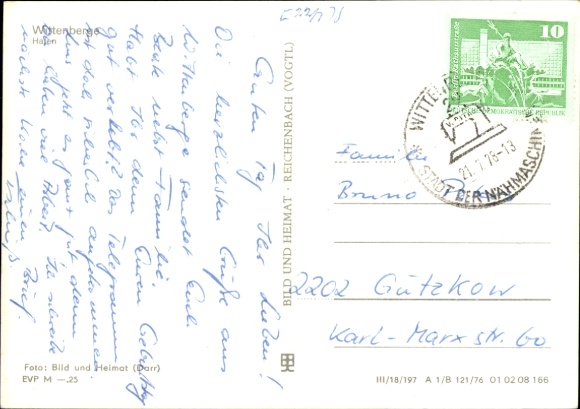 Wittenberge
Hafen
E 22/1 78
Guten Tag Ihr Lieben!
Die herzlichsten Grüße aus
Wittenberge sendet Euch
Beate nebst Familie.
Habt Ihr denn Euren Geburtstag
gut verlebt? Das Telegramm
ist doch angekommen
Uns geht es ganz gut, denn
wir haben viel Arbeit. Ich schreibe
nächste Woche einen
Brief.
Foto: Bild und Heimat (Darr)
EVP M —.25
BILD UND HEIMAT · REICHENBACH (VOGTL)
10
DEMOKRATISCHE REPUBLIK
WITTENBERGE
21.1.78-13
STADT DER NÄHMASCHINEN
Familie
Bruno
2202 Gützkow
Karl-Marx str. 60
III/18/197 A 1/B 121/76 01 02 08 166